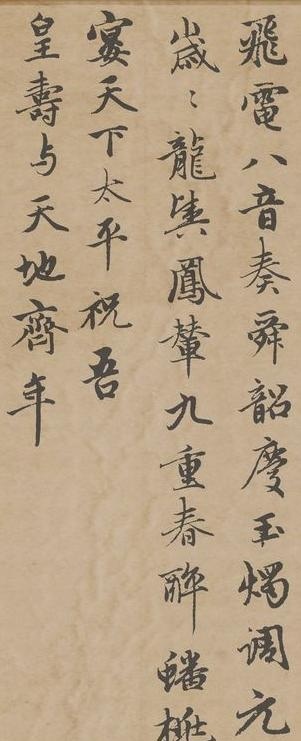 飛電八音奏舜韶慶玉燭調元
歲〻龍輿鳳輦九重春酔蟠桃
宴天下太平祝吾
皇壽与天地齊年